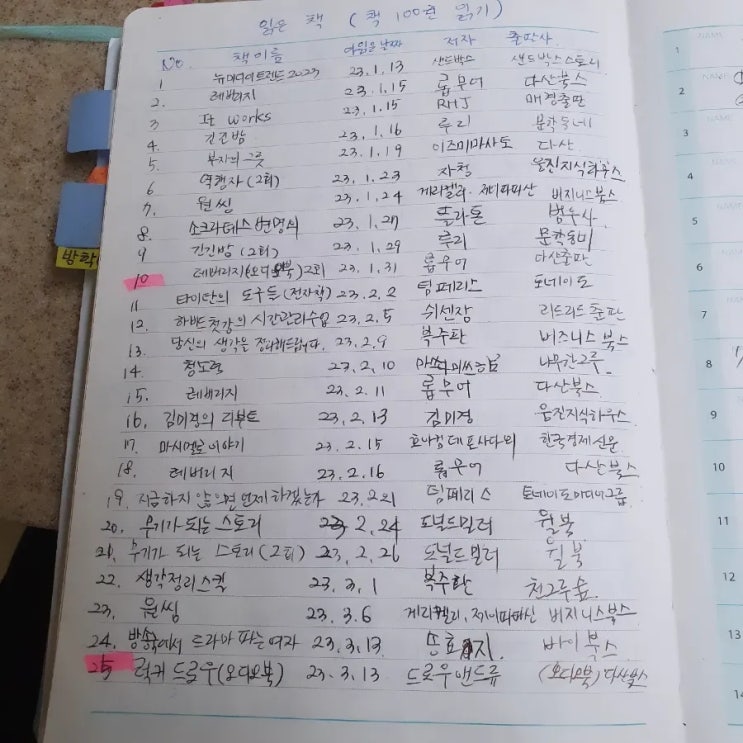 읽은 책 ( 책 100권 읽기 )
No. 책이름 다읽은 날짜 저자 출판사.
1 뉴미디어트렌드2023 23.1.13 샌드박스 샌드박스스토리
2. 레버리지 23.1.15 롭무어 다산북스
3 works 23.1.15 RHJ 매경출판
4. 긴긴밤 23.1.16 루리 문학동네
5. 부자의그릇 23.1.19 이즈미마사토 다산
6 역행자(2회) 23.1.23 자청 웅진지식하우스
7. 원씽 23.1.24 게리켈러. 비지니스북스
8. 소크라테스 변명 23.1.27 플라톤 범우사
9 긴긴밤(2회) 23.1.29 루리 문학동네
10 레버리지(오디오북)2회 23.1.31 롭무어 다산출판
11 타이탄의 도구들(전자책) 23.2.2 팀페리스 토네이도
12. 하버드첫강의시간관리수업 23.2.5 쉬셴장 리드리드출판
13. 당신의 생각을 정리해드립니다. 23.2.9 복주환 비즈니스북스
14. 청노루 23.2.10 나무한그루
15. 레버리지 23.2.11 롭무어 다산북스
16. 김미경의 리부트 23.2.13 김미경 웅진지식하우스
17. 마시멜로이야기 23.2.15 호아킴데포사다외 한국경제신문
18. 레버리지 23.2.16 롭무어 다산북스
19. 지금하지 않으면언제하겠는가 23.2.21 팀페리스 토네이도미디어그룹
20. 무기가되는스토리 23 2.24 도널드밀러 윌북
21. 무기가 되는 스토리(2회) 23.2.26 도널드밀러 윌북
22. 생각정리스킬 23.3.1 복주환 천그루숲
23. 원씽 23.3.6 게리켈러, 제이파파산 비지니스북스
24. 방송국에서 드라마 파는여자 23.3.13 바이북스
25 럭키 드로우(오디오북) 23.3.13 드로우앤드류 (오디오북)다산북스
방학
NAME
1
2
3
4
5
6
7
8
9
10
11
12
13
14